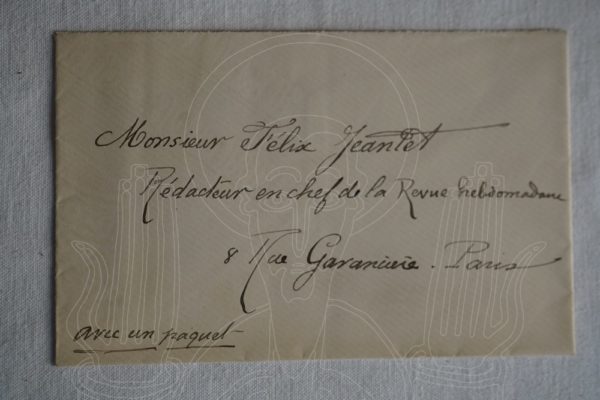 Monsieur Félix Jeantet
Rédacteur en chef de la Revue hebdomadaire
8 Rue Garancière. Paris
avec un paquet